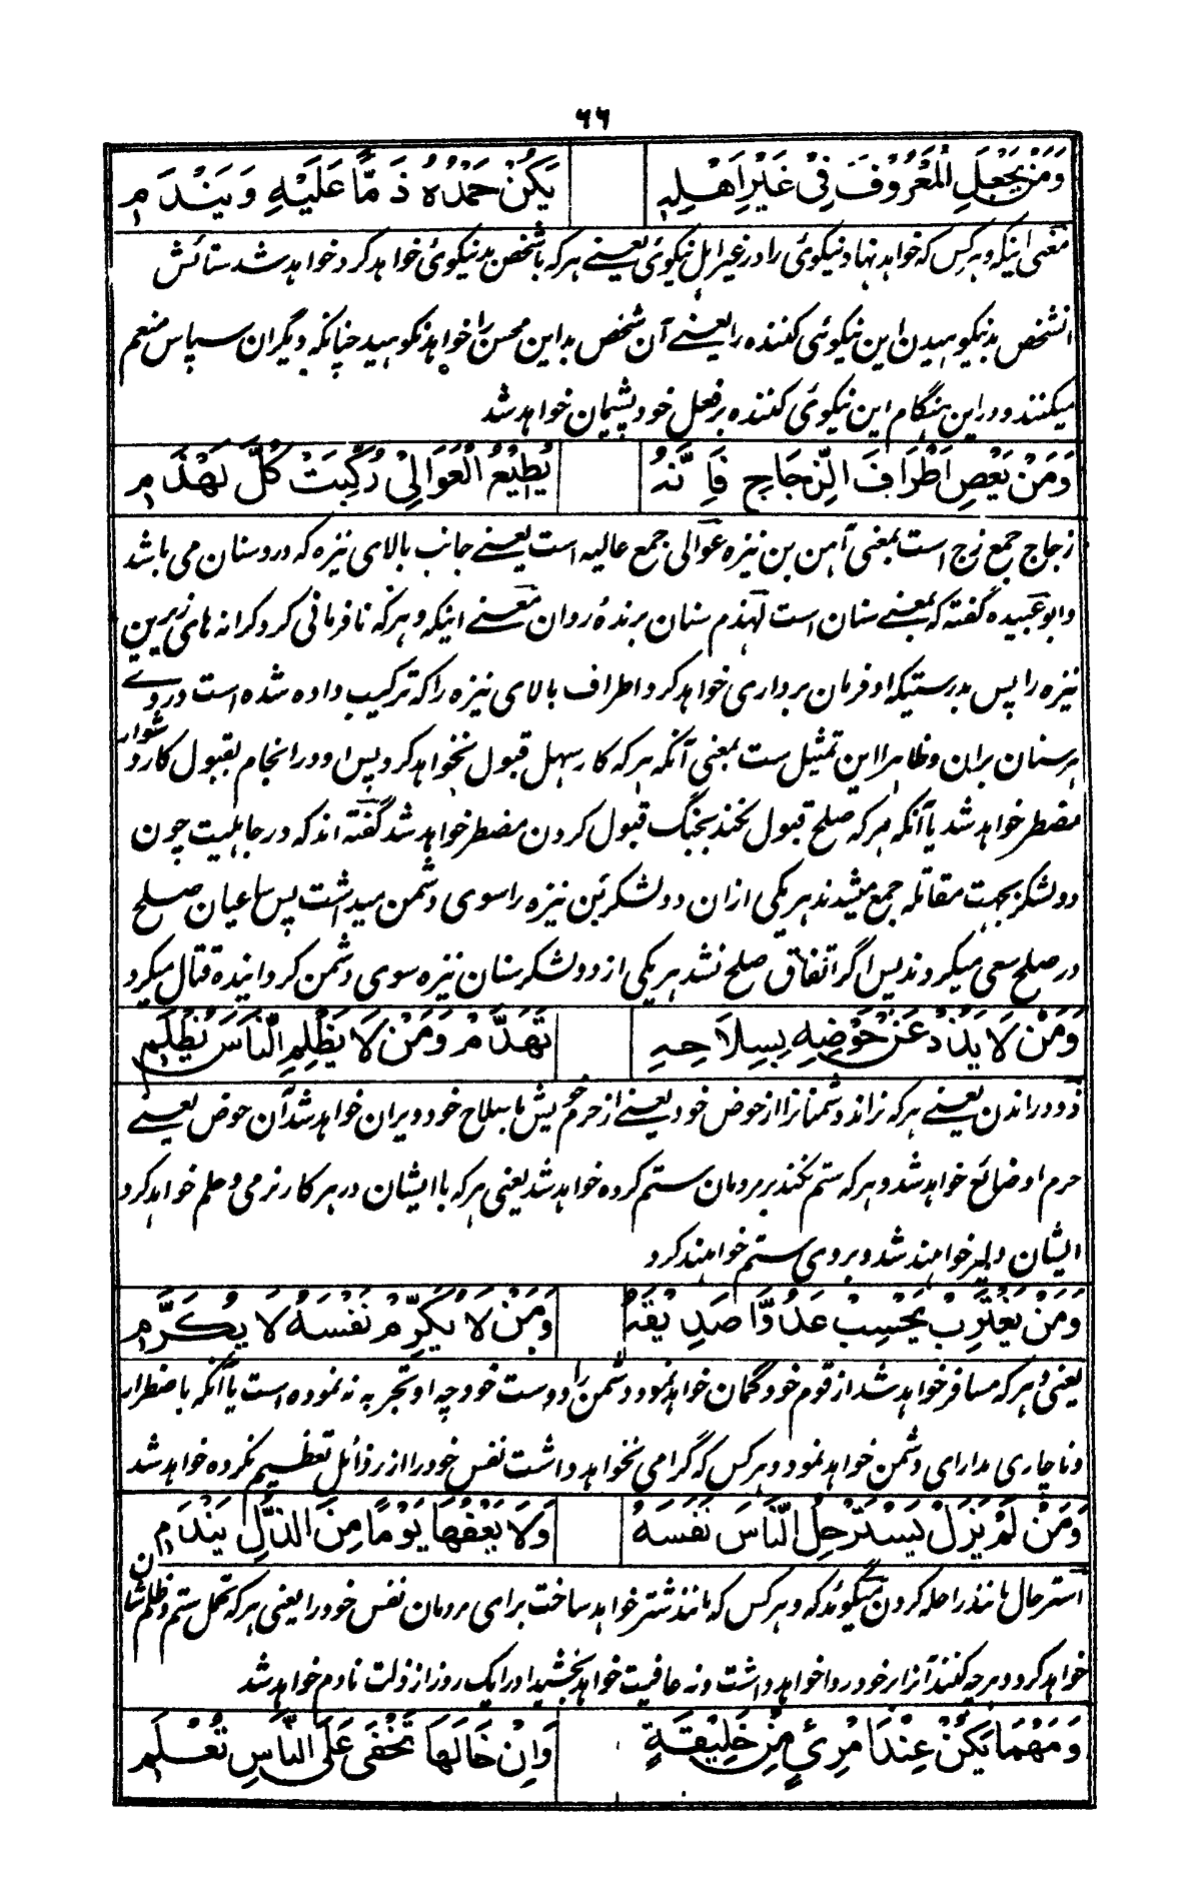 ٦٦
وَمَنْ يَجْعَلِ الْمَعْرُوْفَ فِيْ غَيْرِ اَهْلِهٖ یَكُنْ حَمْدُهُ ذَمًّا عَلَيْهِ وَيَنْدَمِ
معنی اینکه و هرکس که خواهد نهاد نیکوئی را در غیر اهل نیکوئی یعنے هرکه با شخص بد نیکوئی خواهد کرد خواهد شد ستائش
آنشخص بد نکوهیدن این نیکوئی کننده را یعنے آن شخص بد این محسن را خواهد نکوهید چنانکه دیگران سپاس منعم
میکنند و دراین هنگام این نیکوئی کننده بر فعل خود پشیمان خواهد شد
وَمَنْ يَعْصِ اَطْرَافَ الزِّجَاجِ فَاِنَّهُ يُطِيْعُ الْعَوَالِيْ رُكِّبَتْ كُلَّ لَهْذَمِ
زجاج جمع زج است بمعنی آهن بن نیزه عوالی جمع عالیه است یعنے جانب بالای نیزه که دروسنان می باشد
وابوعبیده گفته که بمعنے سنان است لهذم سنان برنده و روان معنے اینکه و هرکه نافرمانی کرد کرانه های زیرین
نیزه را پس بدرستیکه او فرمان برداری خواهد کرد اطراف بالای نیزه را که ترکیب داده شده است دروے
هر سنان بران و ظاهرا این تمثیل ست بمعنی آنکه هرکه کار سهل قبول نخواهد کرد پس او در انجام بقبول کار دشوار
مضطر خواهد شد یا آنکه هرکه صلح قبول نکند بجنگ قبول کردن مضطر خواهد شد گفته اند که در جاهلیت چون
دو لشکر بجهت مقاتله جمع میشدند هریکی ازان دو لشکر بن نیزه را سوی دشمن میداشت پس ساعیان صلح
در صلح سعی میکردند پس اگر اتفاق صلح نشد هریکی از دو لشکر سنان نیزه سوی دشمن گردانیده قتال میکرد
وَمَنْ لَا يَذُدْ عَنْ حَوْضِهٖ بِسِلَاحِهٖ تُهَدَّمْ وَمَنْ لَا يَظْلِمِ النَّاسَ يُظْلَمِ
ذود راندن یعنے هرکه نراند دشمنانرا از حوض خود یعنے از حرم خویش با سلاح خود ویران خواهد شد آن حوض یعنے
حرم او ضائع خواهد شد و هرکه ستم نکند بر مردمان ستم کرده خواهد شد یعنی هرکه با ایشان در هر کار نرمی و حلم خواهد کرد
ایشان دلیر خواهند شد و بر وی ستم خواهند کرد
وَمَنْ يَغْتَرِبْ يَحْسِبْ عَدُوًّا صَدِيْقَهُ وَمَنْ لَا يُكَرِّمْ نَفْسَهُ لَا يُكَرَّمِ
یعنی و هرکه مسافر خواهد شد از قوم خود گمان خواهد نمود دشمن را دوست خود چه او تجربه نه نموده است یا آنکه باضطرار
و ناچاری مدارای دشمن خواهد نمود و هرکس که گرامی نخواهد داشت نفس خود را از رذائل تعظیم نکرده خواهد شد
وَمَنْ لَمْ يَزَلْ يَسْتَرْحِلُ النَّاسَ نَفْسَهُ وَلَا يُعْفِهَا يَوْمًا مِنَ الذُّلِّ يَنْدَمِ
استرحال مانند راحله کردن میگوید که و هرکس که مانند شتر خواهد ساخت برای مردمان نفس خود را یعنی هرکه تحمل ستم و ظلم شان
خواهد کرد و هرچه کنند آنرا بر خود روا خواهد داشت و نه عافیت خواهد بخشید او را یک روز از ذلت نادم خواهد شد
وَمَهْمَا يَكُنْ عِنْدَ امْرِئٍ مِنْ خَلِيْقَةٍ وَاِنْ خَالَهَا تَخْفٰى عَلَى النَّاسِ تُعْلَمِ